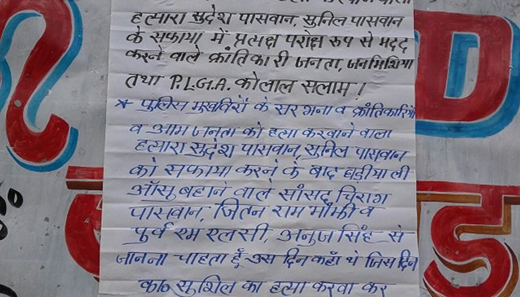 हत्यारा सुदेश पासवान, सुनिल पासवान
के सफाया में प्रत्यक्ष परोक्ष रूप से मदद
करने वाले क्रांतिकारी जनता, जनमिलिशिया
तथा P.L.G.A. को लाल सलाम !
* पुलिस मुखबिरों के सरगना व क्रांतिकारियों
व आम जनता को हत्या करवाने वाला
हत्यारा सुदेश पासवान, सुनिल पासवान
को सफाया करने के बाद घड़ीयाली
आँसू बहाने वाले सांसद चिराग
पासवान, जितन राम माँझी व
पुर्व एम एलसी, अनुज सिंह से
जानना चाहता है, उस दिन कहाँ थे जिस दिन
का० सुशिल का हत्या करवा कर